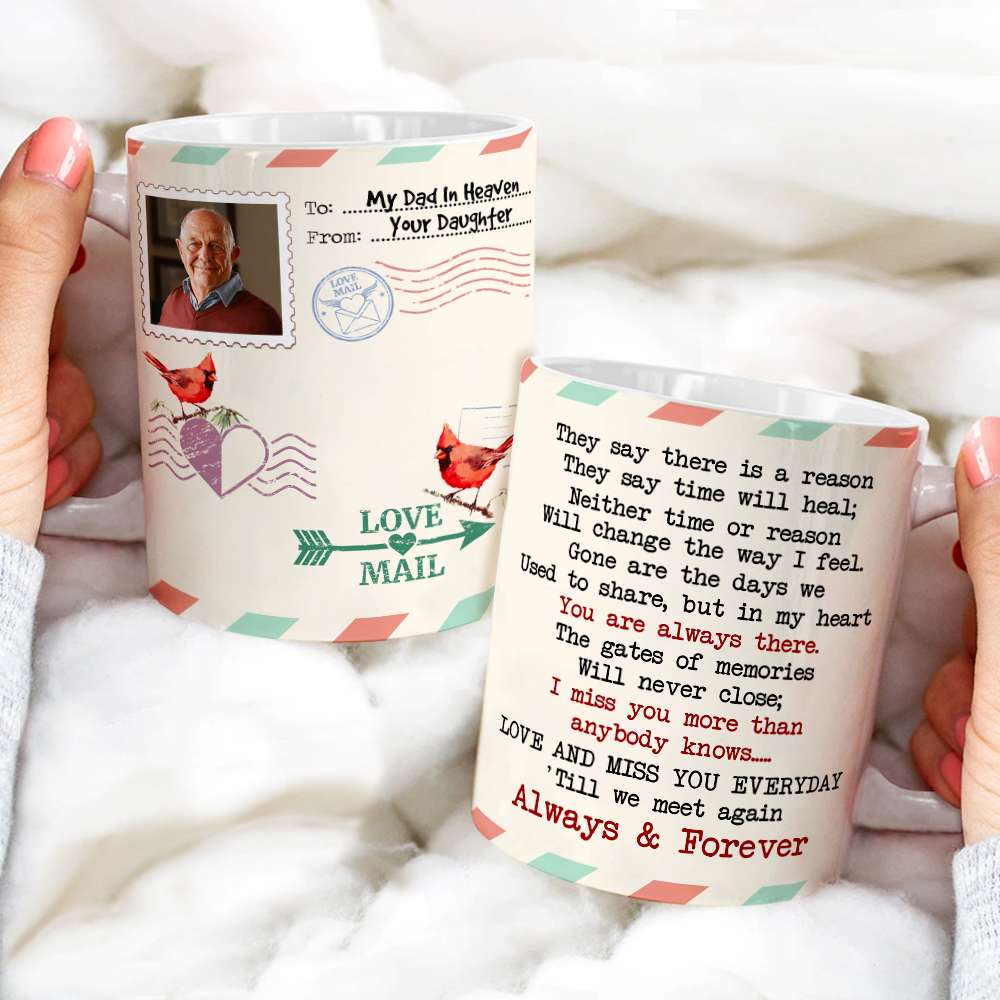 To: My Dad In Heaven
From: Your Daughter
LOVE
MAIL
LOVE
MAIL
They say there is a reason
They say time will heal;
Neither time or reason
Will change the way I feel.
Gone are the days we
Used to share, but in my heart
You are always there.
The gates of memories
Will never close;
I miss you more than
anybody knows.....
LOVE AND MISS YOU EVERYDAY
'Till we meet again
Always & Forever